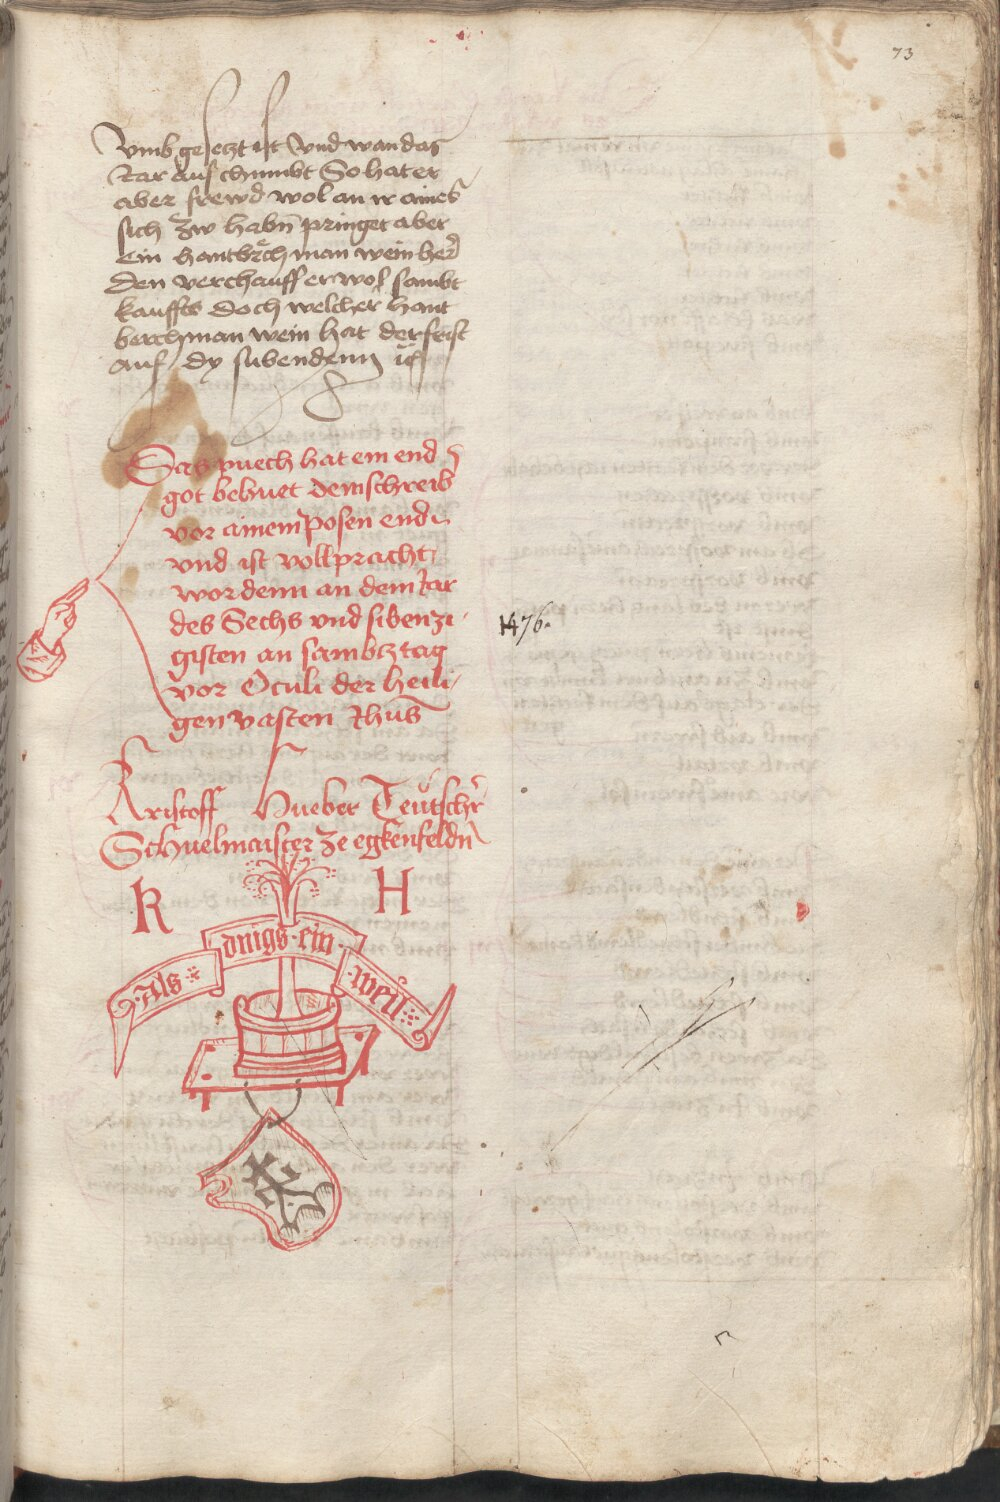 73
vmb gesetzt ist Vnd wan das
Iar auf chumbt So hat er
aber frewd wol an ir aines
sich zw habn pringet aber
Ein hantbrch man wein her
den verchauff er wol sambt
kauffts doch welcher hant
berchman wein hat der
auf dy subendenn
Das puech hat ein end
got behuet dem schreib
vor ainem posen end
vnd ist vollpracht
wordenn an dem Iar
des Sechs vnd sibenzi
gisten an sambtztag
vor Oculi der heili
gen vasten Ihus
1476.
Kristoff Hueber Teutscher
Schuelmaister ze egkenfeldn
K H
Als dnigs ein weil